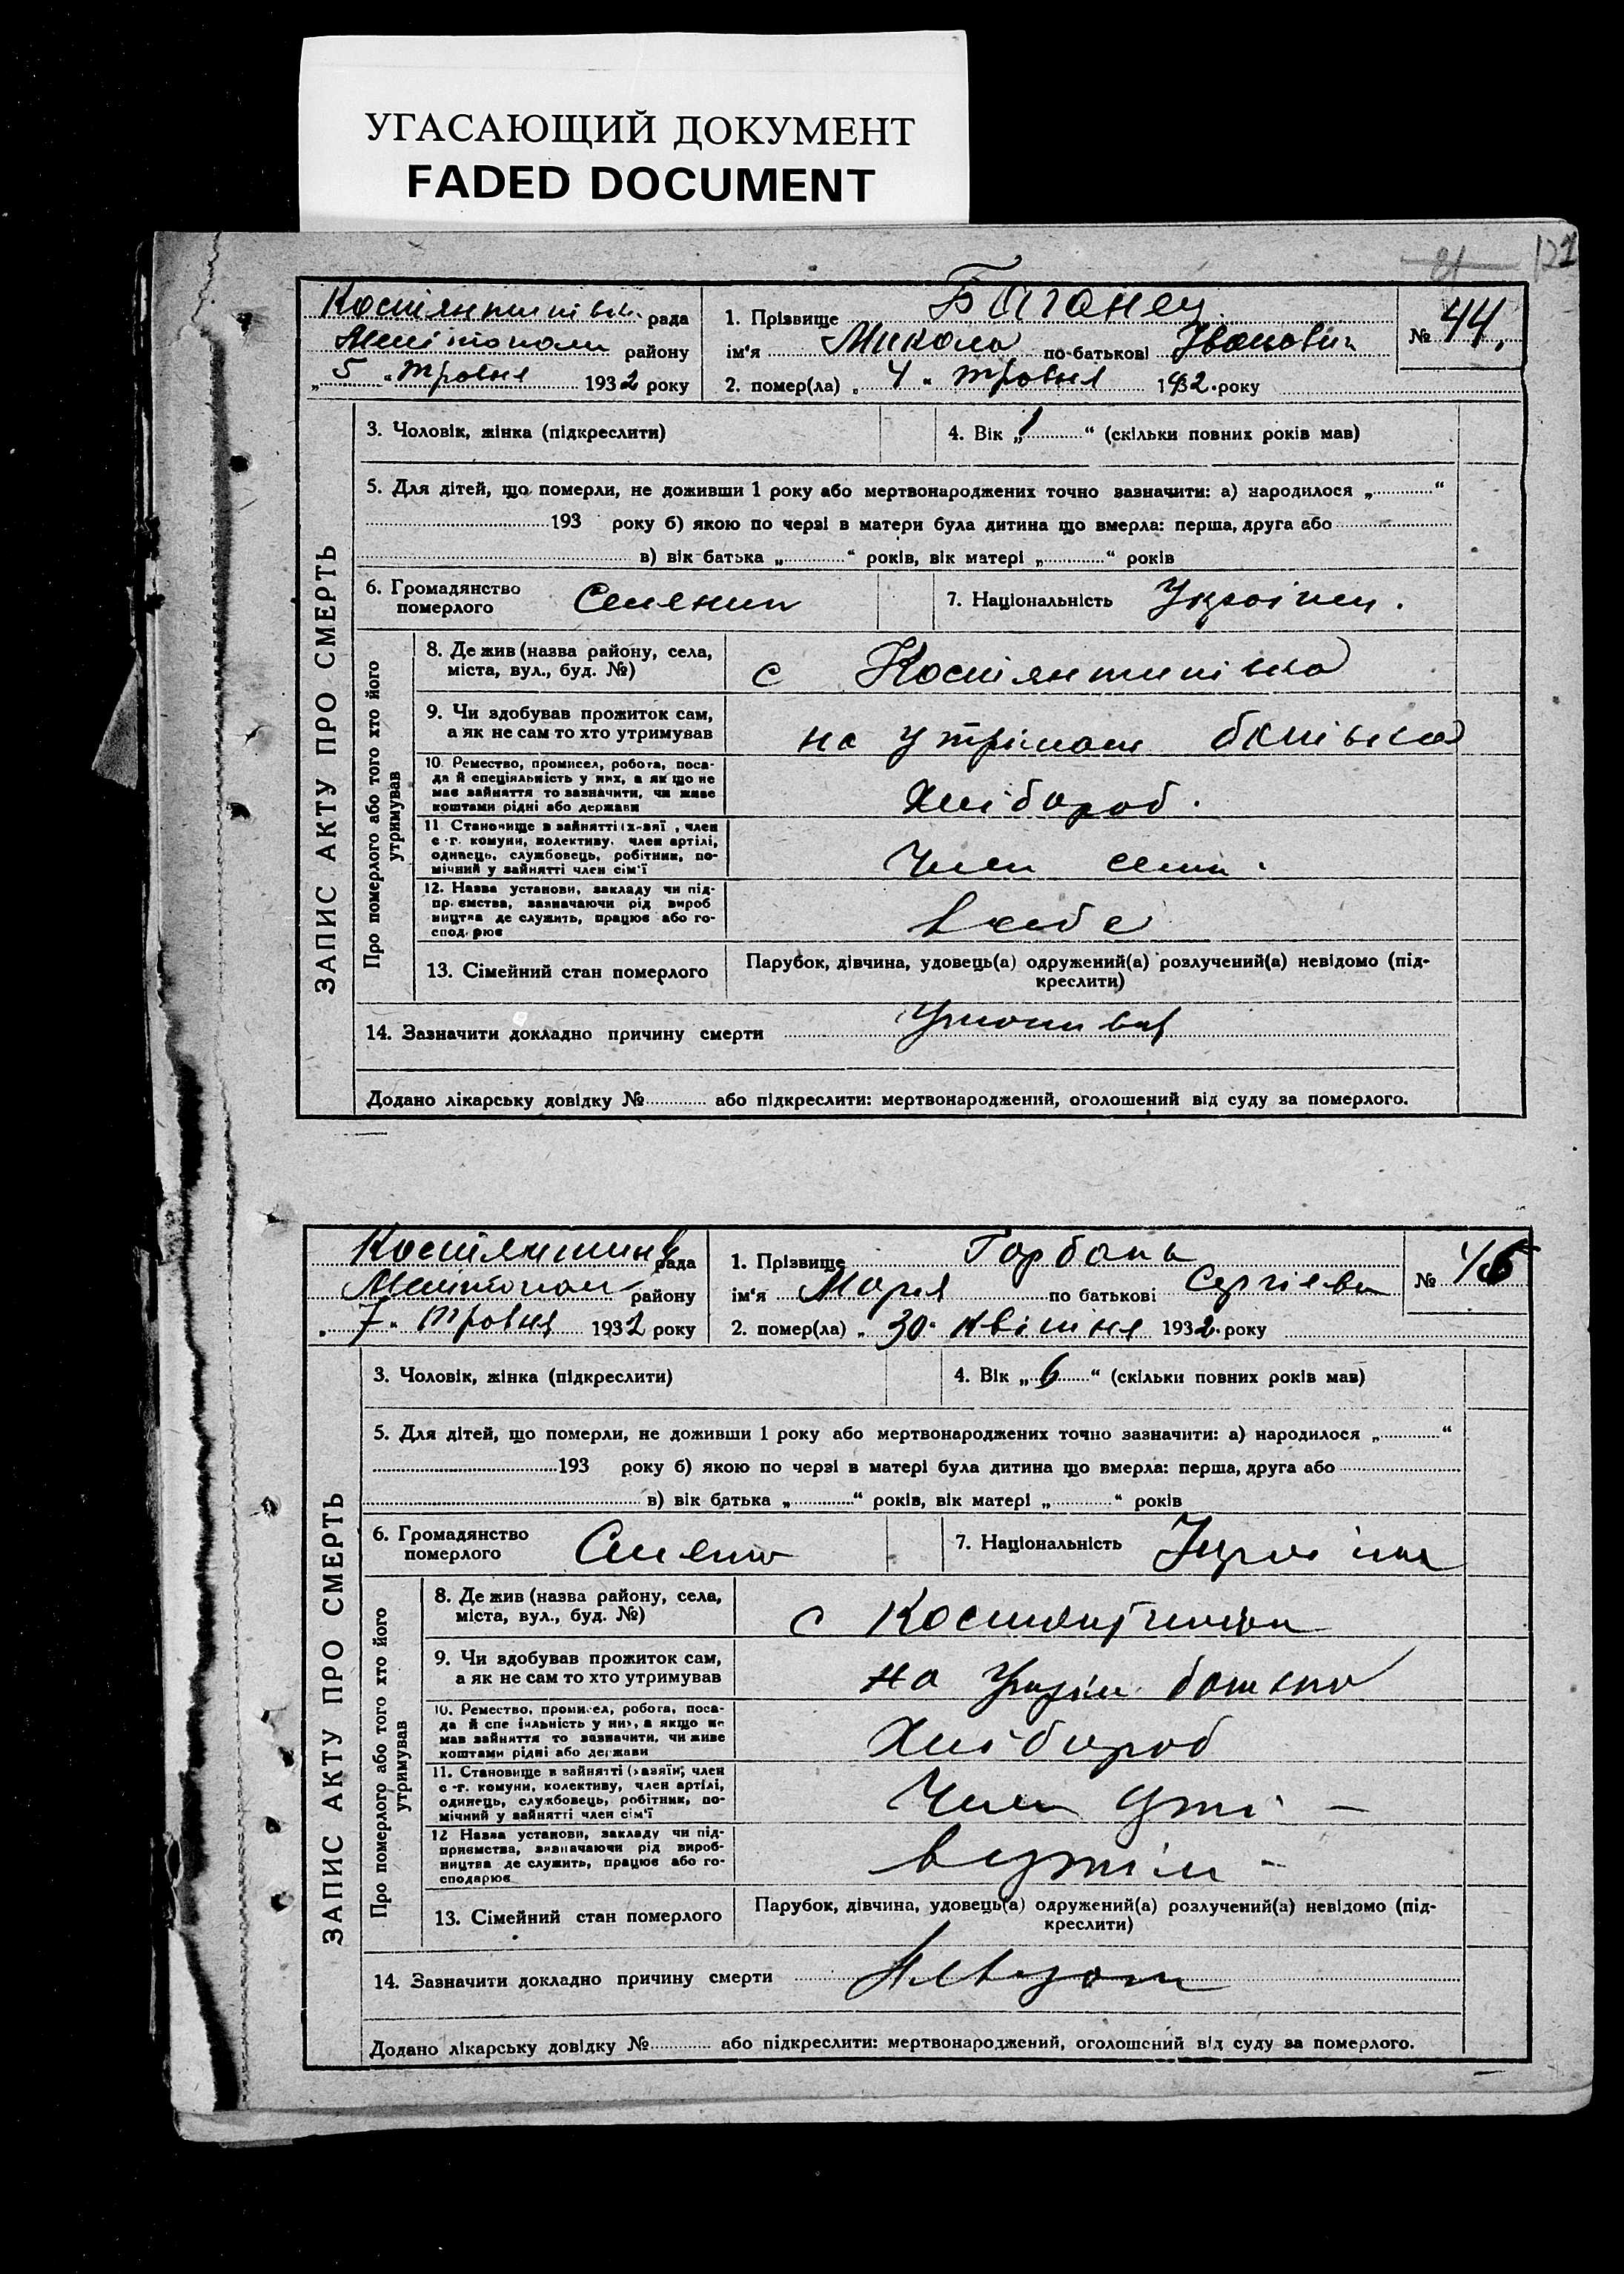 УГАСАЮЩИЙ ДОКУМЕНТ
FADED DOCUMENT
121
Костянтинівськ. рада
Мелітополь району
„5“ Травня 1932 року
1. Прізвище Баганец
ім'я Микола по-батькові Іванович
2. помер(ла) „4“ травня 1932 року
№ 44.
ЗАПИС АКТУ ПРО СМЕРТЬ
3. Чоловік, жінка (підкреслити)
4. Вік „1“ (скільки повних років мав)
5. Для дітей, що померли, не доживши 1 року або мертвонароджених точно вазначити: а) народилося „ “
193 року б) якою по черзі в матери була дитина що вмерла: перша, друга або
в) вік батька „ “ років, вік матері „ “ років
6. Громадянство
померлого Селянин
7. Національність Українц.
Про померлого або того хто його
утримував
8. Де жив (назва району, села,
міста, вул., буд. №)
с Костянтинівка
9. Чи здобував прожиток сам,
а як не сам то хто утримував
на утриман батьіка
10. Ремество, промисел, робота, поса-
да й спеціяльність у них, а якщо не
має зайняття то зазначити, чи живе
коштами рідні або держави
Хлібороб.
11. Становище в зайнятті (х-зяї , член
с.-г. комуни, колективу, член артілі,
одинець, службовець, робітник, по-
мічний у зайнятті член сім'ї
Член семи.
12. Назва установи, закладу чи під-
пр. ємства, вазначаючи рід вироб
ництва де служить, працює або го-
спод. рює
в себе
13. Сімейний стан померлого
Парубок, дівчина, удовець(а) одружений(а) розлучений(а) невідомо (під-
креслити)
14. Зазначити докладно причину смерти
Додано лікарську довідку № або підкреслити: мертвонароджений, оголошений від суду за померлого.
Костянтинів рада
Мелітопол району
„7“ Травня 1932 року
1. Прізвище Горбань
ім'я Марія по батькові Сергіевн
2. помер(ла) „30“ квітня 1932 року
№
ЗАПИС АКТУ ПРО СМЕРТЬ
3. Чоловік, жінка (підкреслити)
4. Вік „6“ (скільки повних років мав)
5. Для дітей, що померли, не доживши 1 року або мертвонароджених точно зазначити: а) народилося „ “
193 року б) якою по черзі в матері була дитина що вмерла: перша, друга або
в) вік батька „ “ років, вік матері „ “ років
6. Громадянство
померлого
7. Національність
Про померлого або того хто його
утримував
8. Де жив (назва району, села,
міста, вул., буд. №)
с
9. Чи здобував прожиток сам,
а як не сам то хто утримував
на утрим батька
10. Ремество, промисел, робота, поса-
да й спеціяльність у них, а якщо не
мав зайняття то зазначити, чи живе
коштами рідні або держави
Хлібороб
11. Становище в зайнятті (хазяїн, член
с-г. комуни, колективу, член артілі,
одинець, службовець, робітник, по-
мічний у зайнятті член сім'ї
Член
12 Назва установи, закладу чи під-
приємства, вазначаючи рід вироб-
ництва де служить, працює або го-
сподарює
13. Сімейний стан померлого
Парубок, дівчина, удовець(а) одружений(а) розлучений(а) невідомо (під-
креслити)
14. Зазначити докладно причину смерти
Додано лікарську довідку № або підкреслити: мертвонароджений, оголошений від суду за померлого.